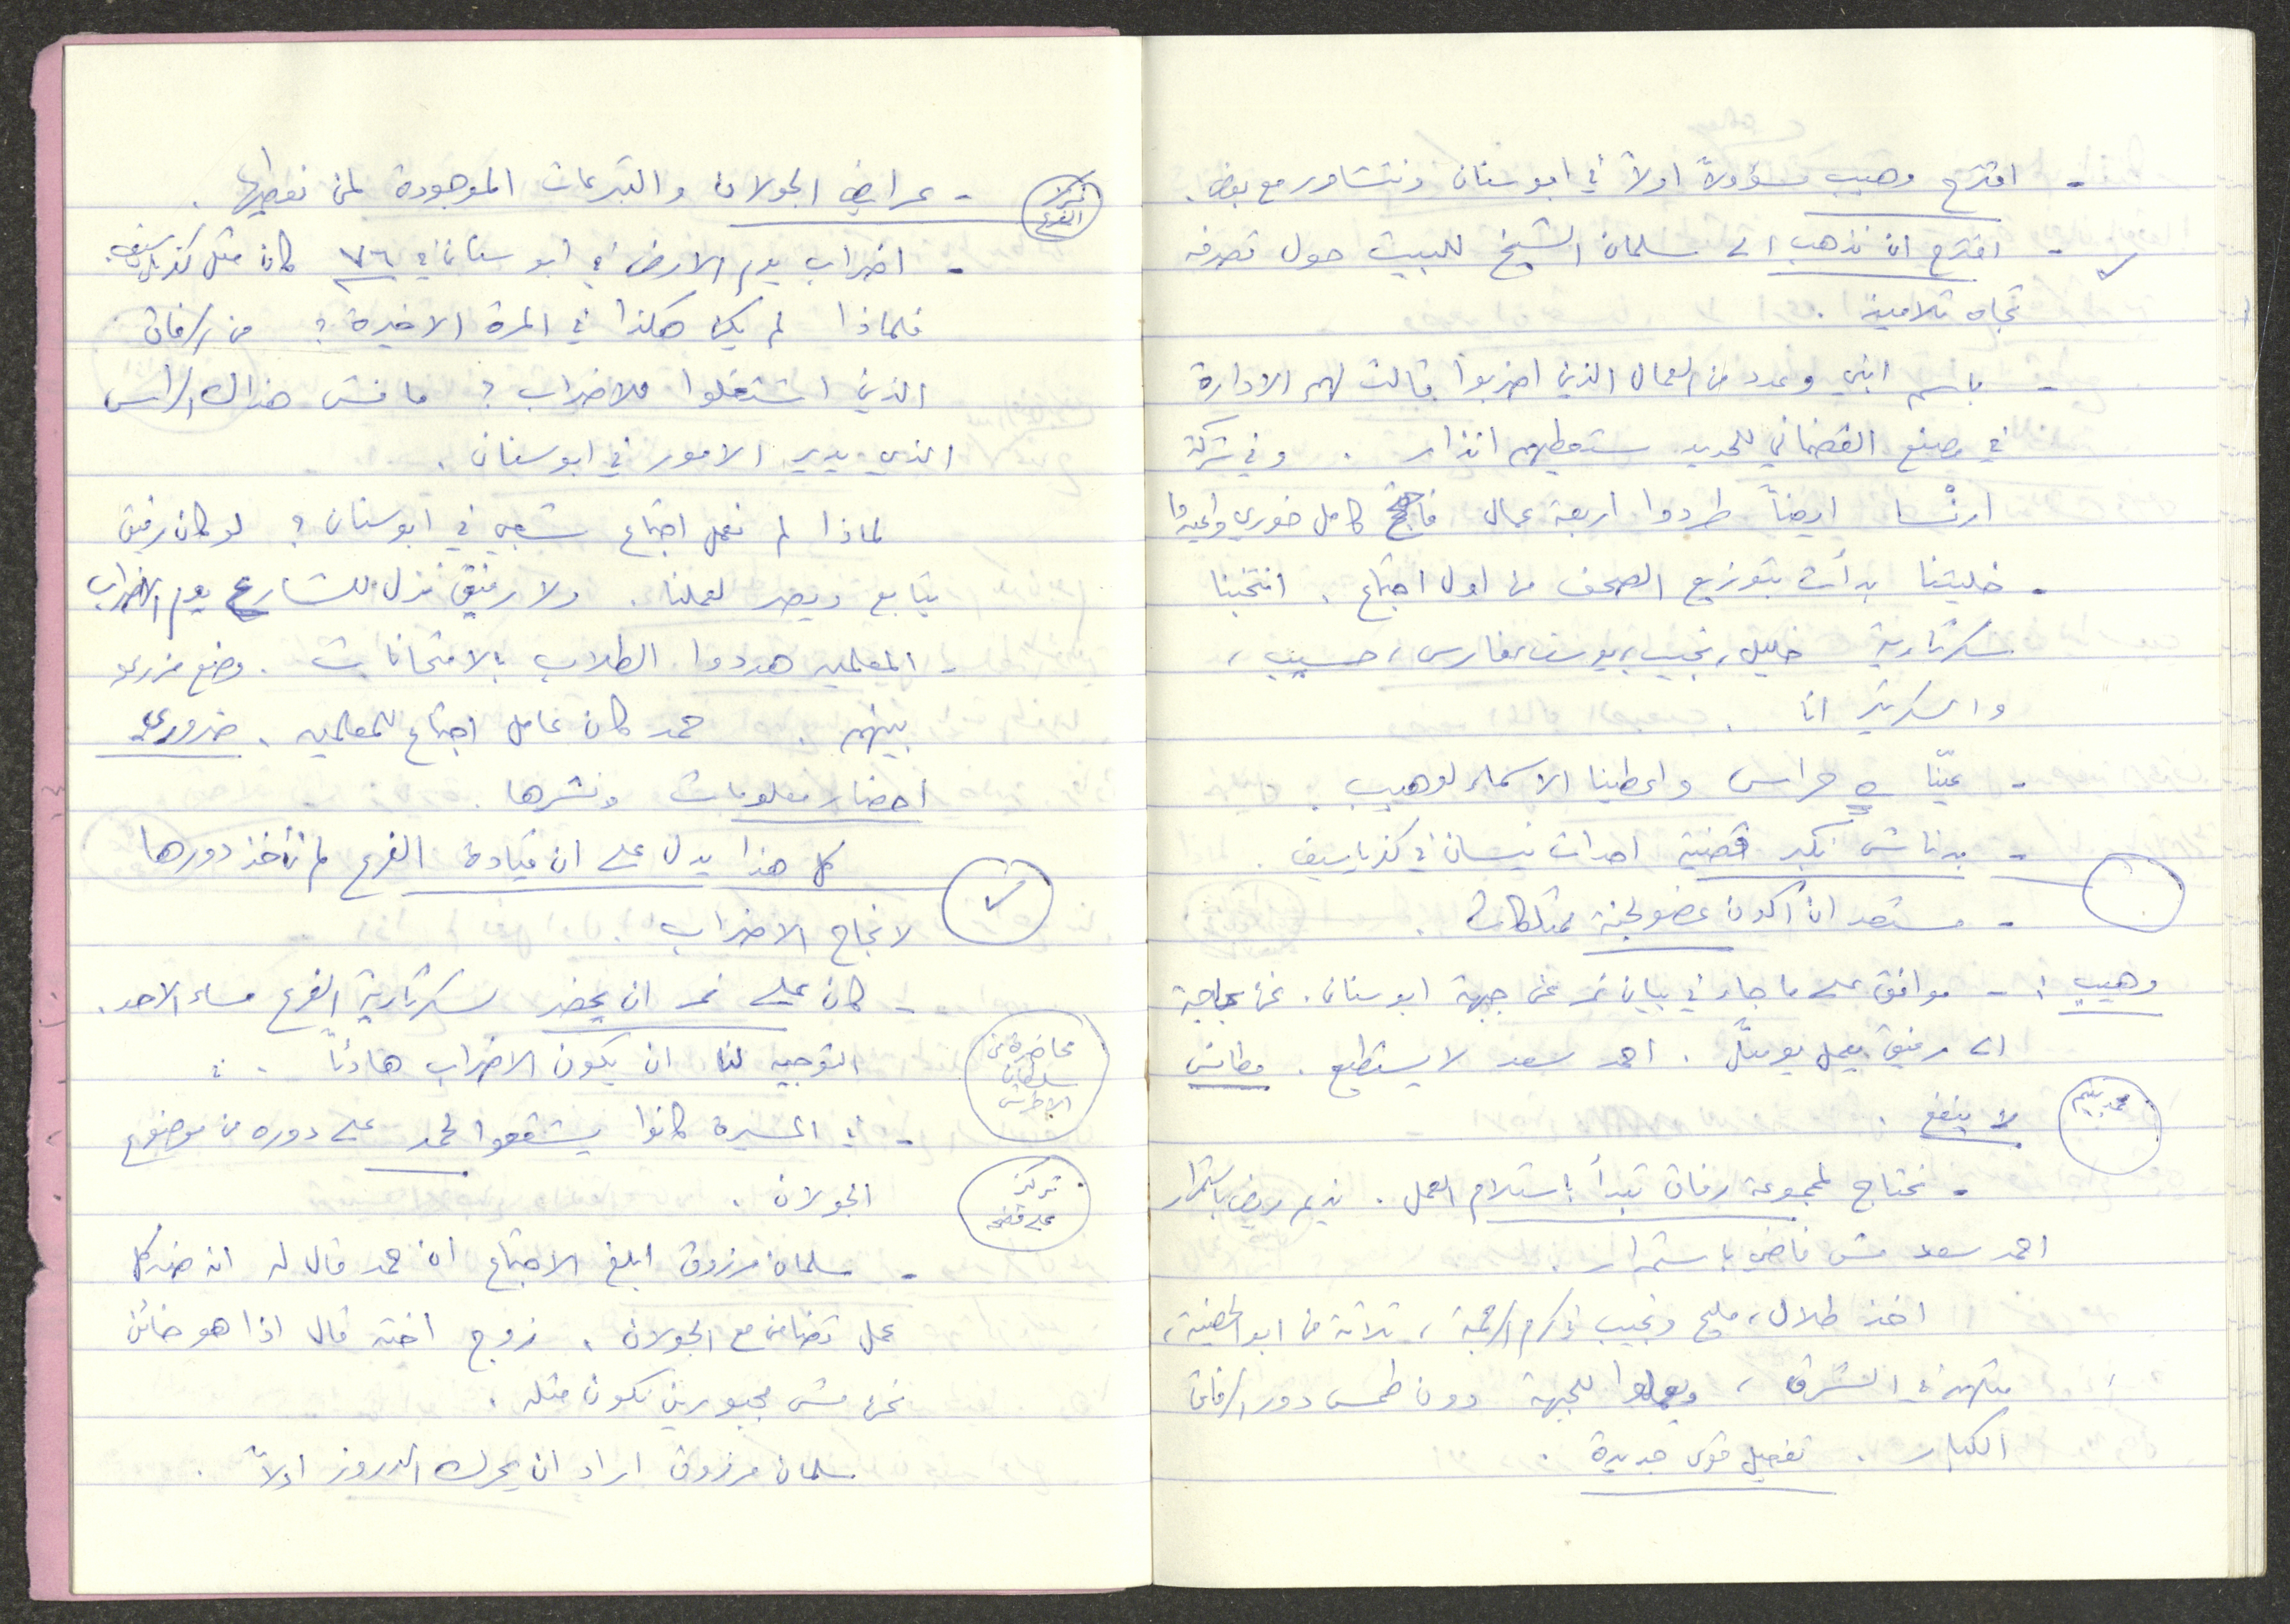 - اقترح وهيب مسؤولاً اولاً في ابوسنان ونتشاور مع بعض.
- اقترح ان نذهب الى سلمان الشيخ للبيت حول تصرفه
تجاه تلاميذ.
- باسم ابني وعدد من العمال الذين اضربوا قالت لهم الادارة
في مصنع القضماني للحديد ستعطيهم انذار. وفي شركة
ايضاً طردوا اربعة عمال كامل خوري
- خليتنا بدأت بتوزيع الصحف من اول اجتماع. انتخبنا
سكرتارية خليل، نجيب، يوسف، فارس، حسيب،
والسكرتير انا.
- عيّنا ٥ حراس واعطينا الاسماء لوهيب.
- بدناش نكبر قضية احداث نيسان في كفرياسيف.
- مستعد ان اكون عضو لجنة ممتلكات.
وهيب: - موافق على ما جاء في بيان نمر عن جبهة ابوسنان. نحن بحاجة
الى رفيق يعمل يومياً. احمد سعد لا يستطيع.
لا ينفع.
محمد
- نحتاج لمجموعة رفاق تبدأ استلام العمل. نديم مريض باستمرار
احمد سعد مش فاضي باستمرار.
اخذ طلال، مليح ونجيب، ثلاثة من ابو
الشرق، ويعملوا للجبهة دون طمس دور الرفاق
الكبار. تفعيل قوى جديدة.
- عرايض الجولان والتبرعات الموجودة لمن نعطيها.
الفرع
- اضراب يوم الارض في ابو سنان في ٧٦ كان مثل كفرياسيف.
فلماذا لم يكن هكذا في المرة الاخيرة؟ من رفاق
الذين اشتغلوا للاضراب؟ مافش هناك الراس
الذي يدير الامور في ابوسنان.
لماذا لم نعمل اجتماع شعبي في ابوسنان؟ لو كان رفيق
يتابع ويصر لعملنا. ولا رفيق نزل للشارع يوم الاضراب
- المعلمين هددوا الطلاب بالامتحانات. وضع مزري
بينهم. حمد كان عامل اجتماع للمعلمين. ضروري
احضار معلومات ونشرها.
كل هذا يدل على ان قيادة الفرع لم تأخذ دورها
لانجاح الاضراب.
- كان على نمر ان يحضر لسكرتارية الفرع مساء الاحد.
التوجيه لنا ان يكون الاضراب هادئاً.
محاضرة عن
سلطان
الاطرش
- في المسيرة كانوا يشقعوا لحمد على دوره من موضوع
الجولان.
تركيز
على قضية
- سلمان مرزوق ابلغ الاجتماع ان حمد قال له انه ضد كل
عمل تضامن مع الجولان. زوج اخته قال اذا هو خائن
نحن مش مجبورين نكون مثله.
سلمان مرزوق اراد ان يحرك الدروز اولاً.